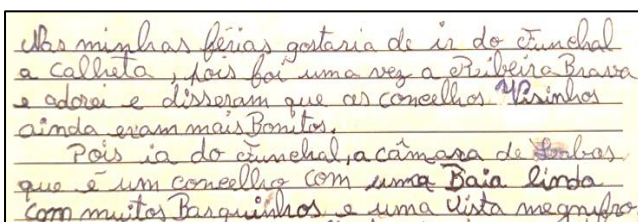 Nas minhas férias gostaria de ir do Funchal
a Calheta, pois foi uma vez a Ribeira Brava
e adorei e disseram que os concelhos Visinhos
ainda eram mais Bonitos.
Pois ia do Funchal, a câmara de Lobos
que é um concelho com uma Baia linda
com muitos Barquinhos e uma vista